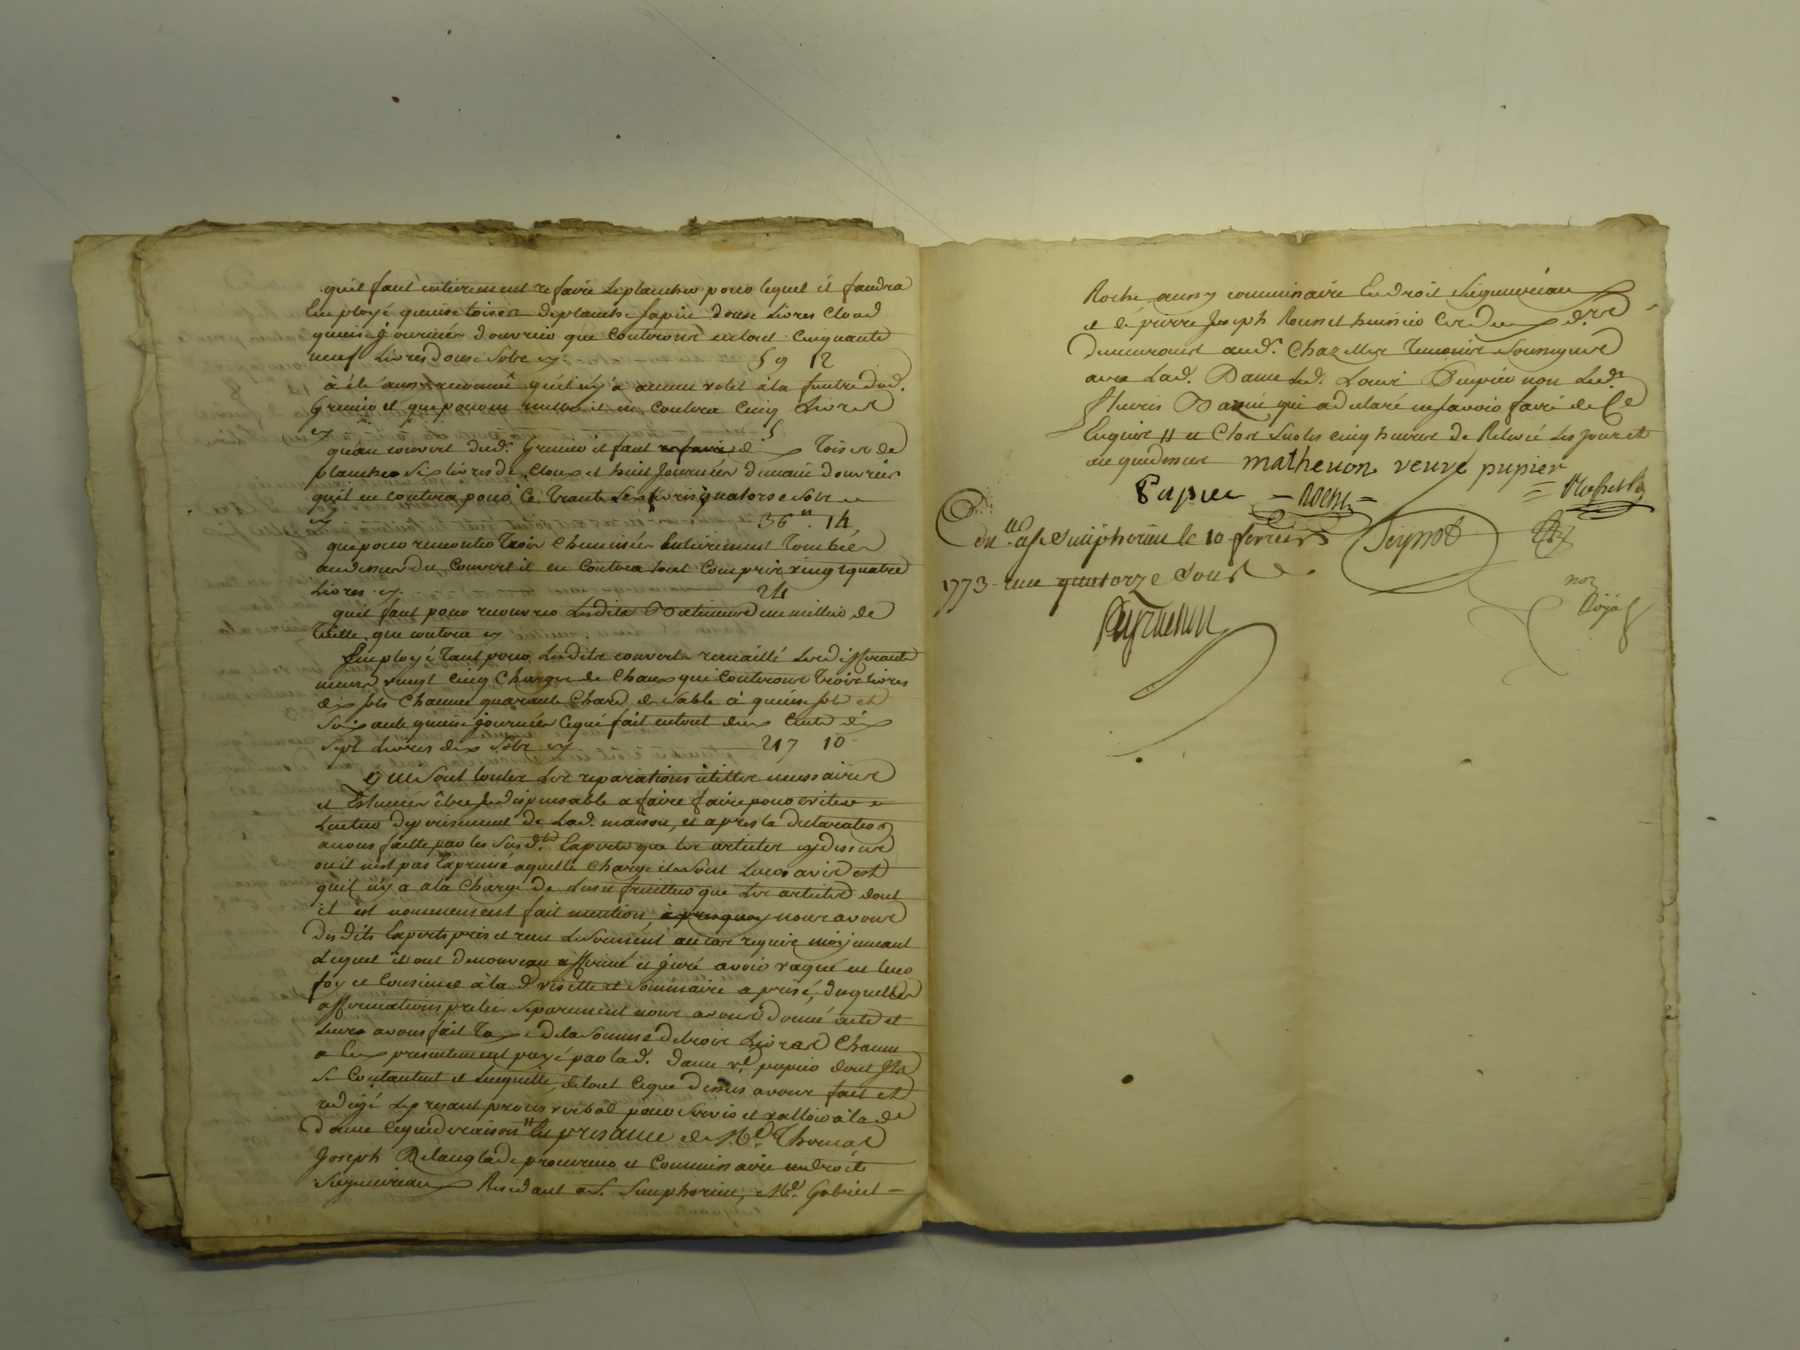 qu'il faut entierement refaire le plancher pour lequel il faudra
Employé quinse toises de planche sapin douse Livres Cloud
quinse journées d'ouvrier que Couteront en tout Cinquante
neuf Livres douse Sols cy 59 12
à été aussy reconnû qu'il n'y a aucun volet à la fenetre dud.
Grenier et que pour en mettre il en Coutera Cinq Livres
cy 5
qu'au couvert dud. Grenier il faut refaire dix Toises de
planches Six livres de Cloux et huit Journées de main d'ouvrier
qu'il en coutera pour Ce Trante Six livres quatorse Sols
cy 36 14
que pour remonter Trois Cheminées Entierement Tombées
au dessus du Couvert il en Coutera tout Compris vingt quatre
Livres cy 24
qu'il faut pour recouvrir Lesdits Batiments un millier de
Tuille que coutera cy
Employé Tant pour Lesdits couverts remaillé Les differants
murs vingt cinq Charges de Chaux qui Couteront Trois livres
dix sols Chacune quarante Chars de Sable à quinse sols et
Soixante quinse journées Ce qui fait en tout deux Cents dix
Sept Livres dix Sols cy 217 10
Qui Sont toutes Les reparations utilles necessaires
et Estimées être Indispensable a faire faire pour eviter
L'entier deperissement de Lad. maison, et apres la declaration
a nous faitte par les Susd.ts Experts que les articles cy dessus
ou il n'est pas Exprimé a quelle Charge ils Sont Leur avis est
qu'il n'y a à la Charge de L'usufruittier que Les articles dont
il est nommement fait mention, apres quoy nous avons
Desdits Experts pris et reçu Le Serment au cas requis moyennant
Lequel ils ont de nouveau affirmé et juré avoir vaqué en leur
foy et Consience à la d. visitte et Sommaire aprisé, desquelles
affirmations pretées Separement nous avons donné acte et
Leurs avons fait Taxe de la Somme de trois Livres Chacun
a Eux presentement payé par lad. Dame v.e pupier dont Ils
Se Contantent et L'enquitte, de tout Ce que Dessus avons fait et
redigé Le presant procès verbal pour Servir et valloir à lad.
Dame Ce que de raison En presance de M.e Thomas
Joseph Delanglade procureur et Commissaire en droits
Seigneuriaux Residant a S. Simphorien, M.e Gabriel
Roche aussy commissaire En droit Seigneuriaux
et de pierre Joseph Rousset huissier
Demeurant aud. Chazelles Temoins Soussignés
avec Lad. Dame Led. Louis Pupier non Led.
qui a declaré ne savoir faire de Ce
Enquis et Clos Sur les cinq heures de Relevé Les Jour et
an que dessus mathevon veuve pupier
Pupier Roche
Con.lé a S.t Simphorien le 10 fevrier
1773 reçu quatorze Sous
not
Royal